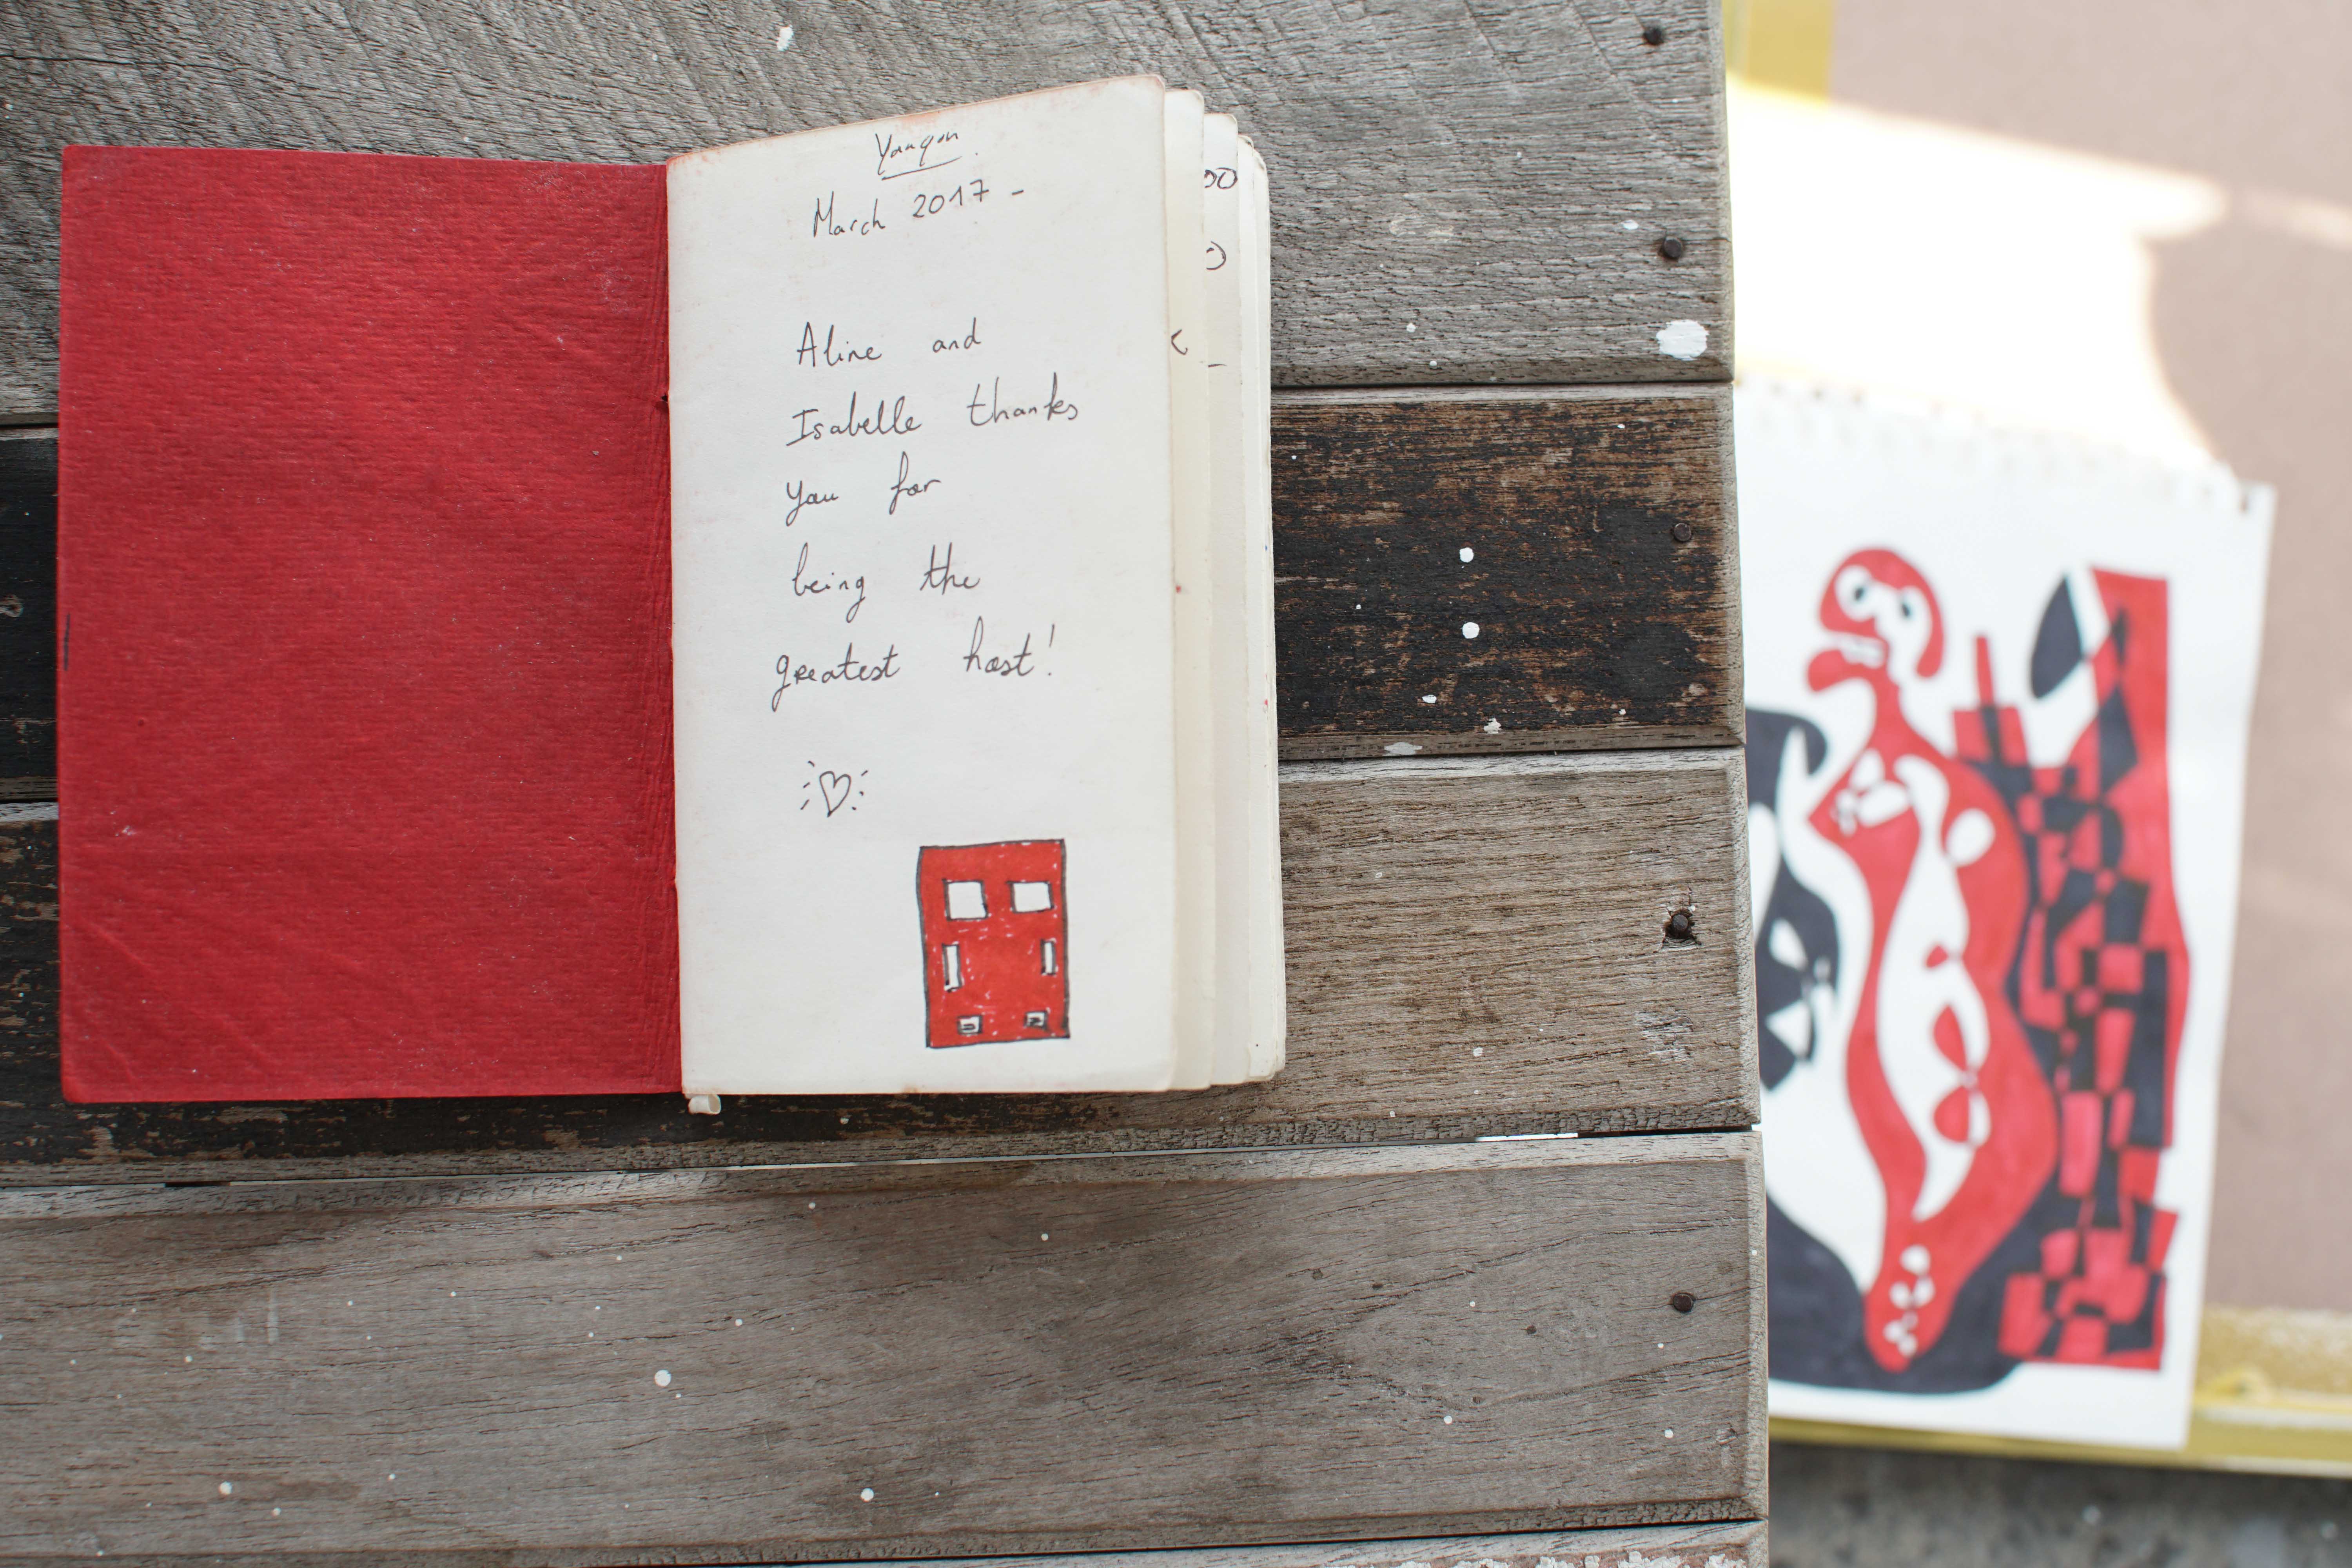 Yangon
March 2017 -
Aline and
Isabelle thanks
you for
being the
greatest host!